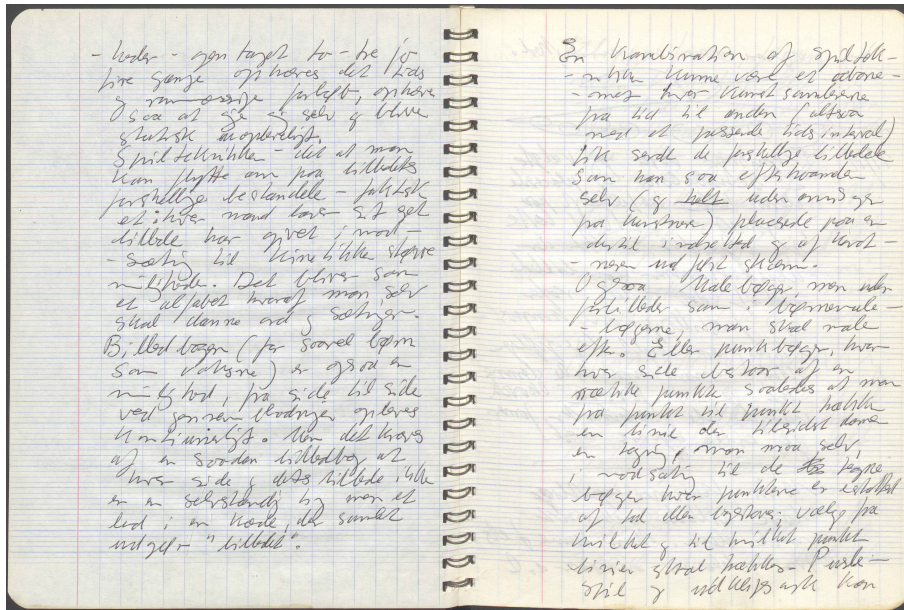 - heder - gentaget to - tre jo
fire gange ophæves det tids
og rummæssige forløb, ophæves
Ogsaa at øje sig selv og blive
statisk uopdeligt.
Spilteknikken - det at man
kan flytte om paa billedets
forskellige bestandele - faktisk
at ihver mand laver sit eget
billede har givet i mod-
- sætnig til kinetikken større
muligheder. Det bliver som
et alfabet hvoraf man selv
skal danne ord og sætnger.
Billedbogen (for saavel børn
som voksne) er ogsaa en
mulighed, fra side til side
ved gennem bladringen opleves
kontinuerligt. Men det kræves
af en saadan billedbog at
hver side og dets billede ikke
er en selvstændig ting men et
led i en kæde, der samlet
udgør "billedet".
En kombination af spiltek-
- nikken kunne være et abone-
- ment hvor kunst samlerne
fra tid til anden (altsaa
med et passende tidsinterval)
fik sendt de forskellige billeddele
som han saa efterhaanden
selv (og helt uden anvisninger
fra kunstneren) placerede paa en
dertil indrettet og af kunst-
- neren udført skærm.
Ogsaa Malebøger, men uden
forbilleder som i børnemale-
- bøgerne, man skal male
efter. Eller punktbøger, hvor
hver side bestaar af en
række punkter saaledes at man
fra punkt til punkt trækker
en linie der tilsidst danner
en tegning, man maa selv,
i modsætnig til de tegne
bøger hvor punkterne er etableret
af tal eller bogstaver, vælge fra
hvilket og til hvilket punkt
linien skal trækkes - Pusle-
spil og udklipsark kan